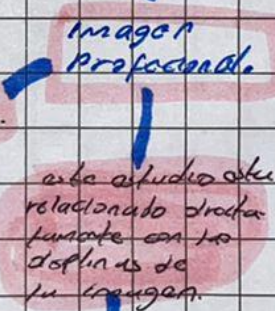 Imagen
Profecional.
este estudio esta
relacionado drecta-
tamente con las
displinas de
la imagen.